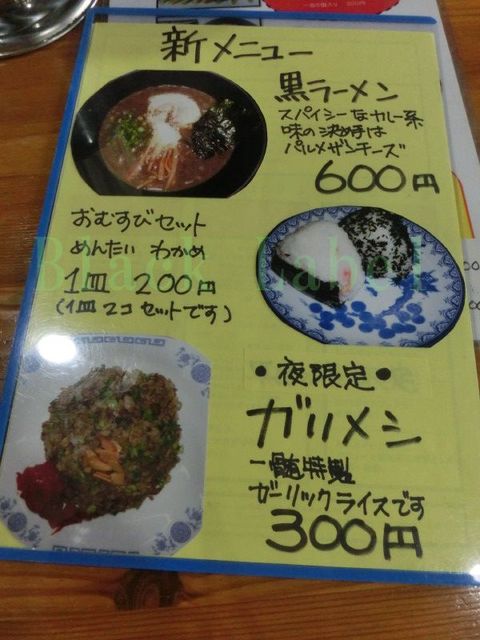 新メニュー
黒ラーメン
スパイシーなカレー系
味の決め手は
パルメザンチーズ
600円
おむすびセット
めんたい わかめ
1皿 200円
(1皿2コセットです)
Black Label
•夜限定•
ガリメシ
一髄特製
ガーリックライスです
300円